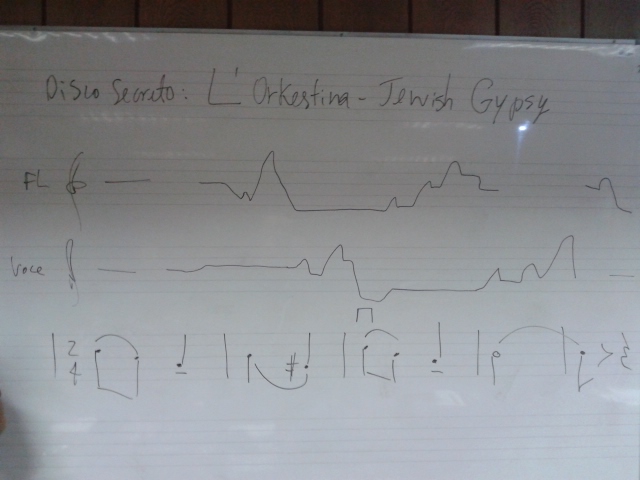 Disco Secreto: L' Orkestina - Jewish Gypsy
FL
Voce
2
4